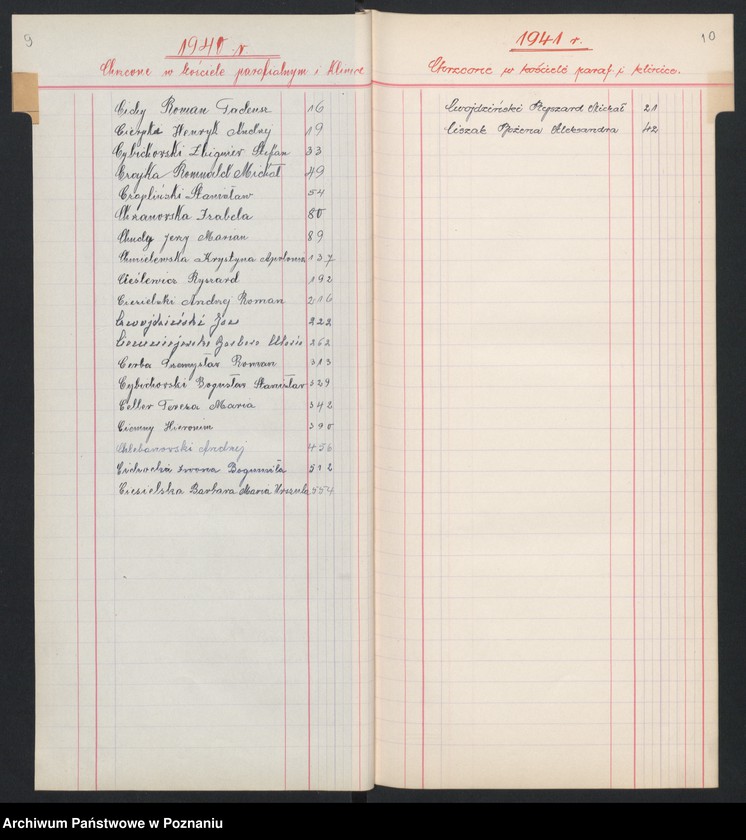 9
1940 r.
Chrzcone w kościele parafialnym i klinice
Cichy Roman Tadeusz 16
Henryk Andrzej 19
Cybichowski Zbigniew Stefan 33
Romuald Michał 49
Czapliński Stanisław 54
Chranowska Izabela 80
Chudy Jerzy Marian 89
Chmielewska Krystyna Apolonia 137
Cieślewicz Ryszard 192
Ciesielski Andrzej Roman 216
Cwojdziński Jan 222
Barbara Maria 262
Cerba Przemysław Roman 313
Cybichowski Bogusław Stanisław 329
Celler Teresa Maria 342
Ciemny Hieronim 390
Chlebanowski Andrzej 456
Iwona Bogumiła 512
Ciesielska Barbara Maria Urszula 554
10
1941 r.
Chrzczone w kościele paraf. i klinice.
Cwojdziński Ryszard Michał 21
Ciszak Bożena Aleksandra 42
Archiwum Państwowe w Poznaniu